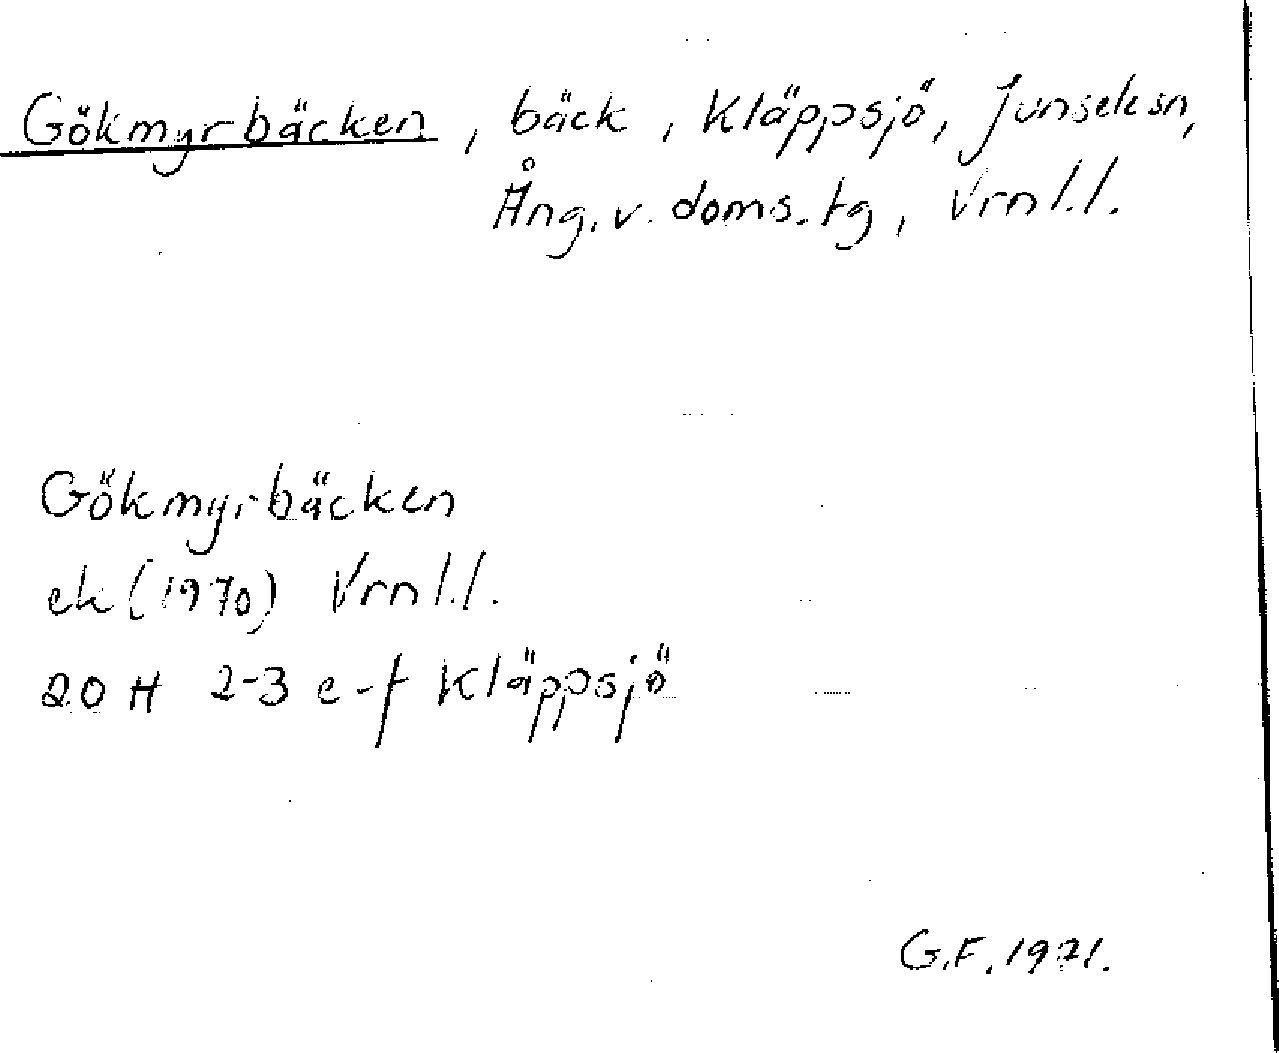 Gökmyrbäcken, bäck, Kläppsjö, Junselesn,
Ång. v. doms.tg, Vrnl.l.
Gökmyrbäcken
ek (1970) Vrnl.l.
20 H 2-3 e-f Kläppsjö
G.F. 1971.